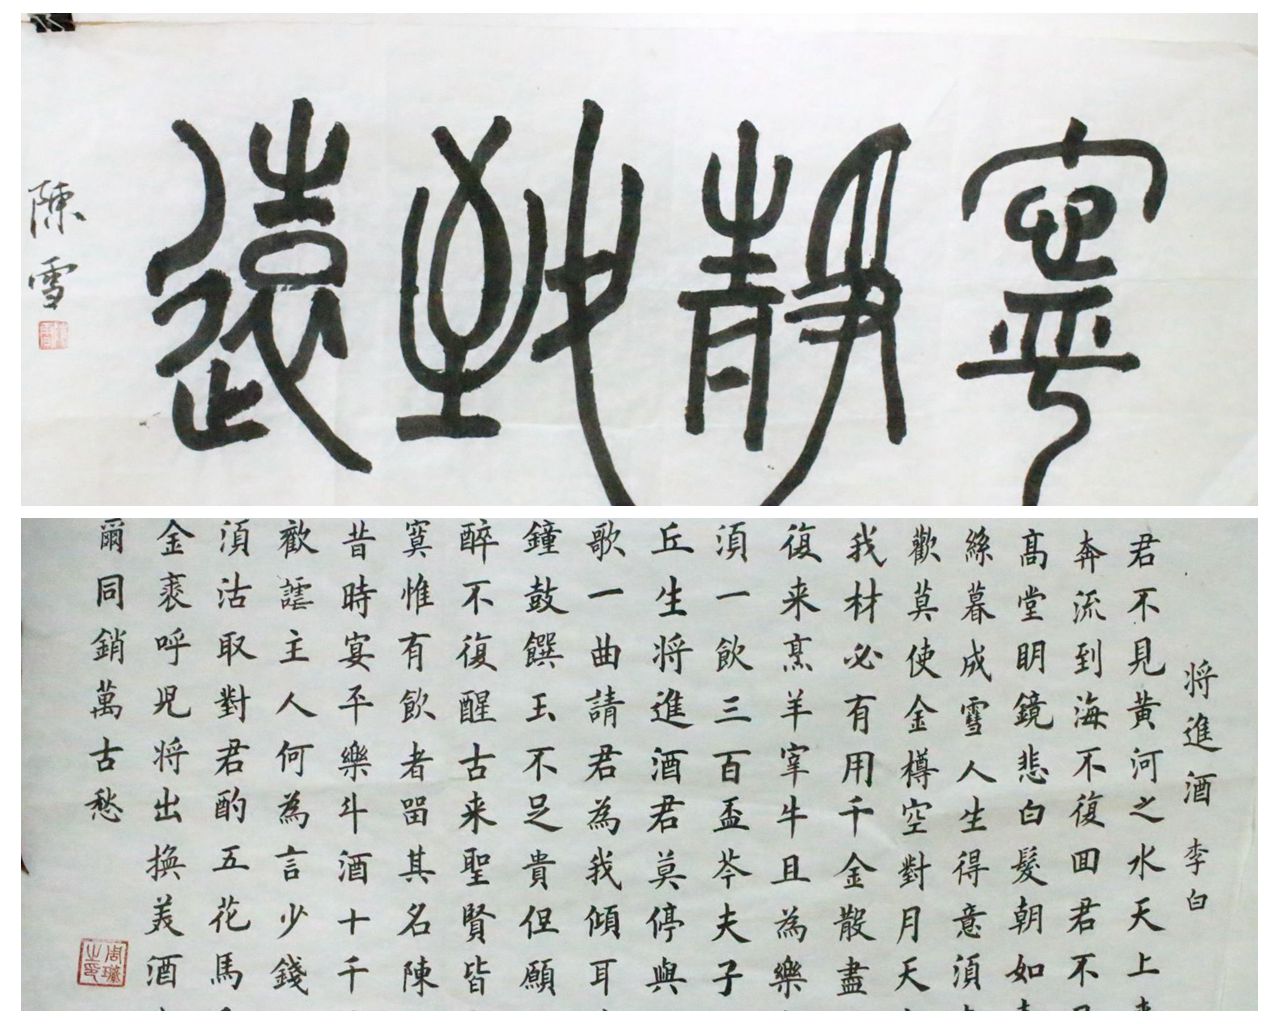 寧靜致遠
陳雪
将進酒 李白
君不見黄河之水天上
奔流到海不復囬君不
髙堂明鏡悲白髮朝如
絲暮成雪人生得意須
歡莫使金樽空對月天
我材必有用千金散盡
復来烹羊宰牛且為樂
須一飲三百盃岑夫子
丘生将進酒君莫停與
歌一曲請君為我傾耳
鐘鼓饌玉不足貴但願
醉不復醒古来聖賢皆
寞惟有飲者畱其名陳
昔時宴平樂斗酒十千
歡謔主人何為言少錢
須沽取對君酌五花馬
金裘呼児将出換美酒
爾同銷萬古愁